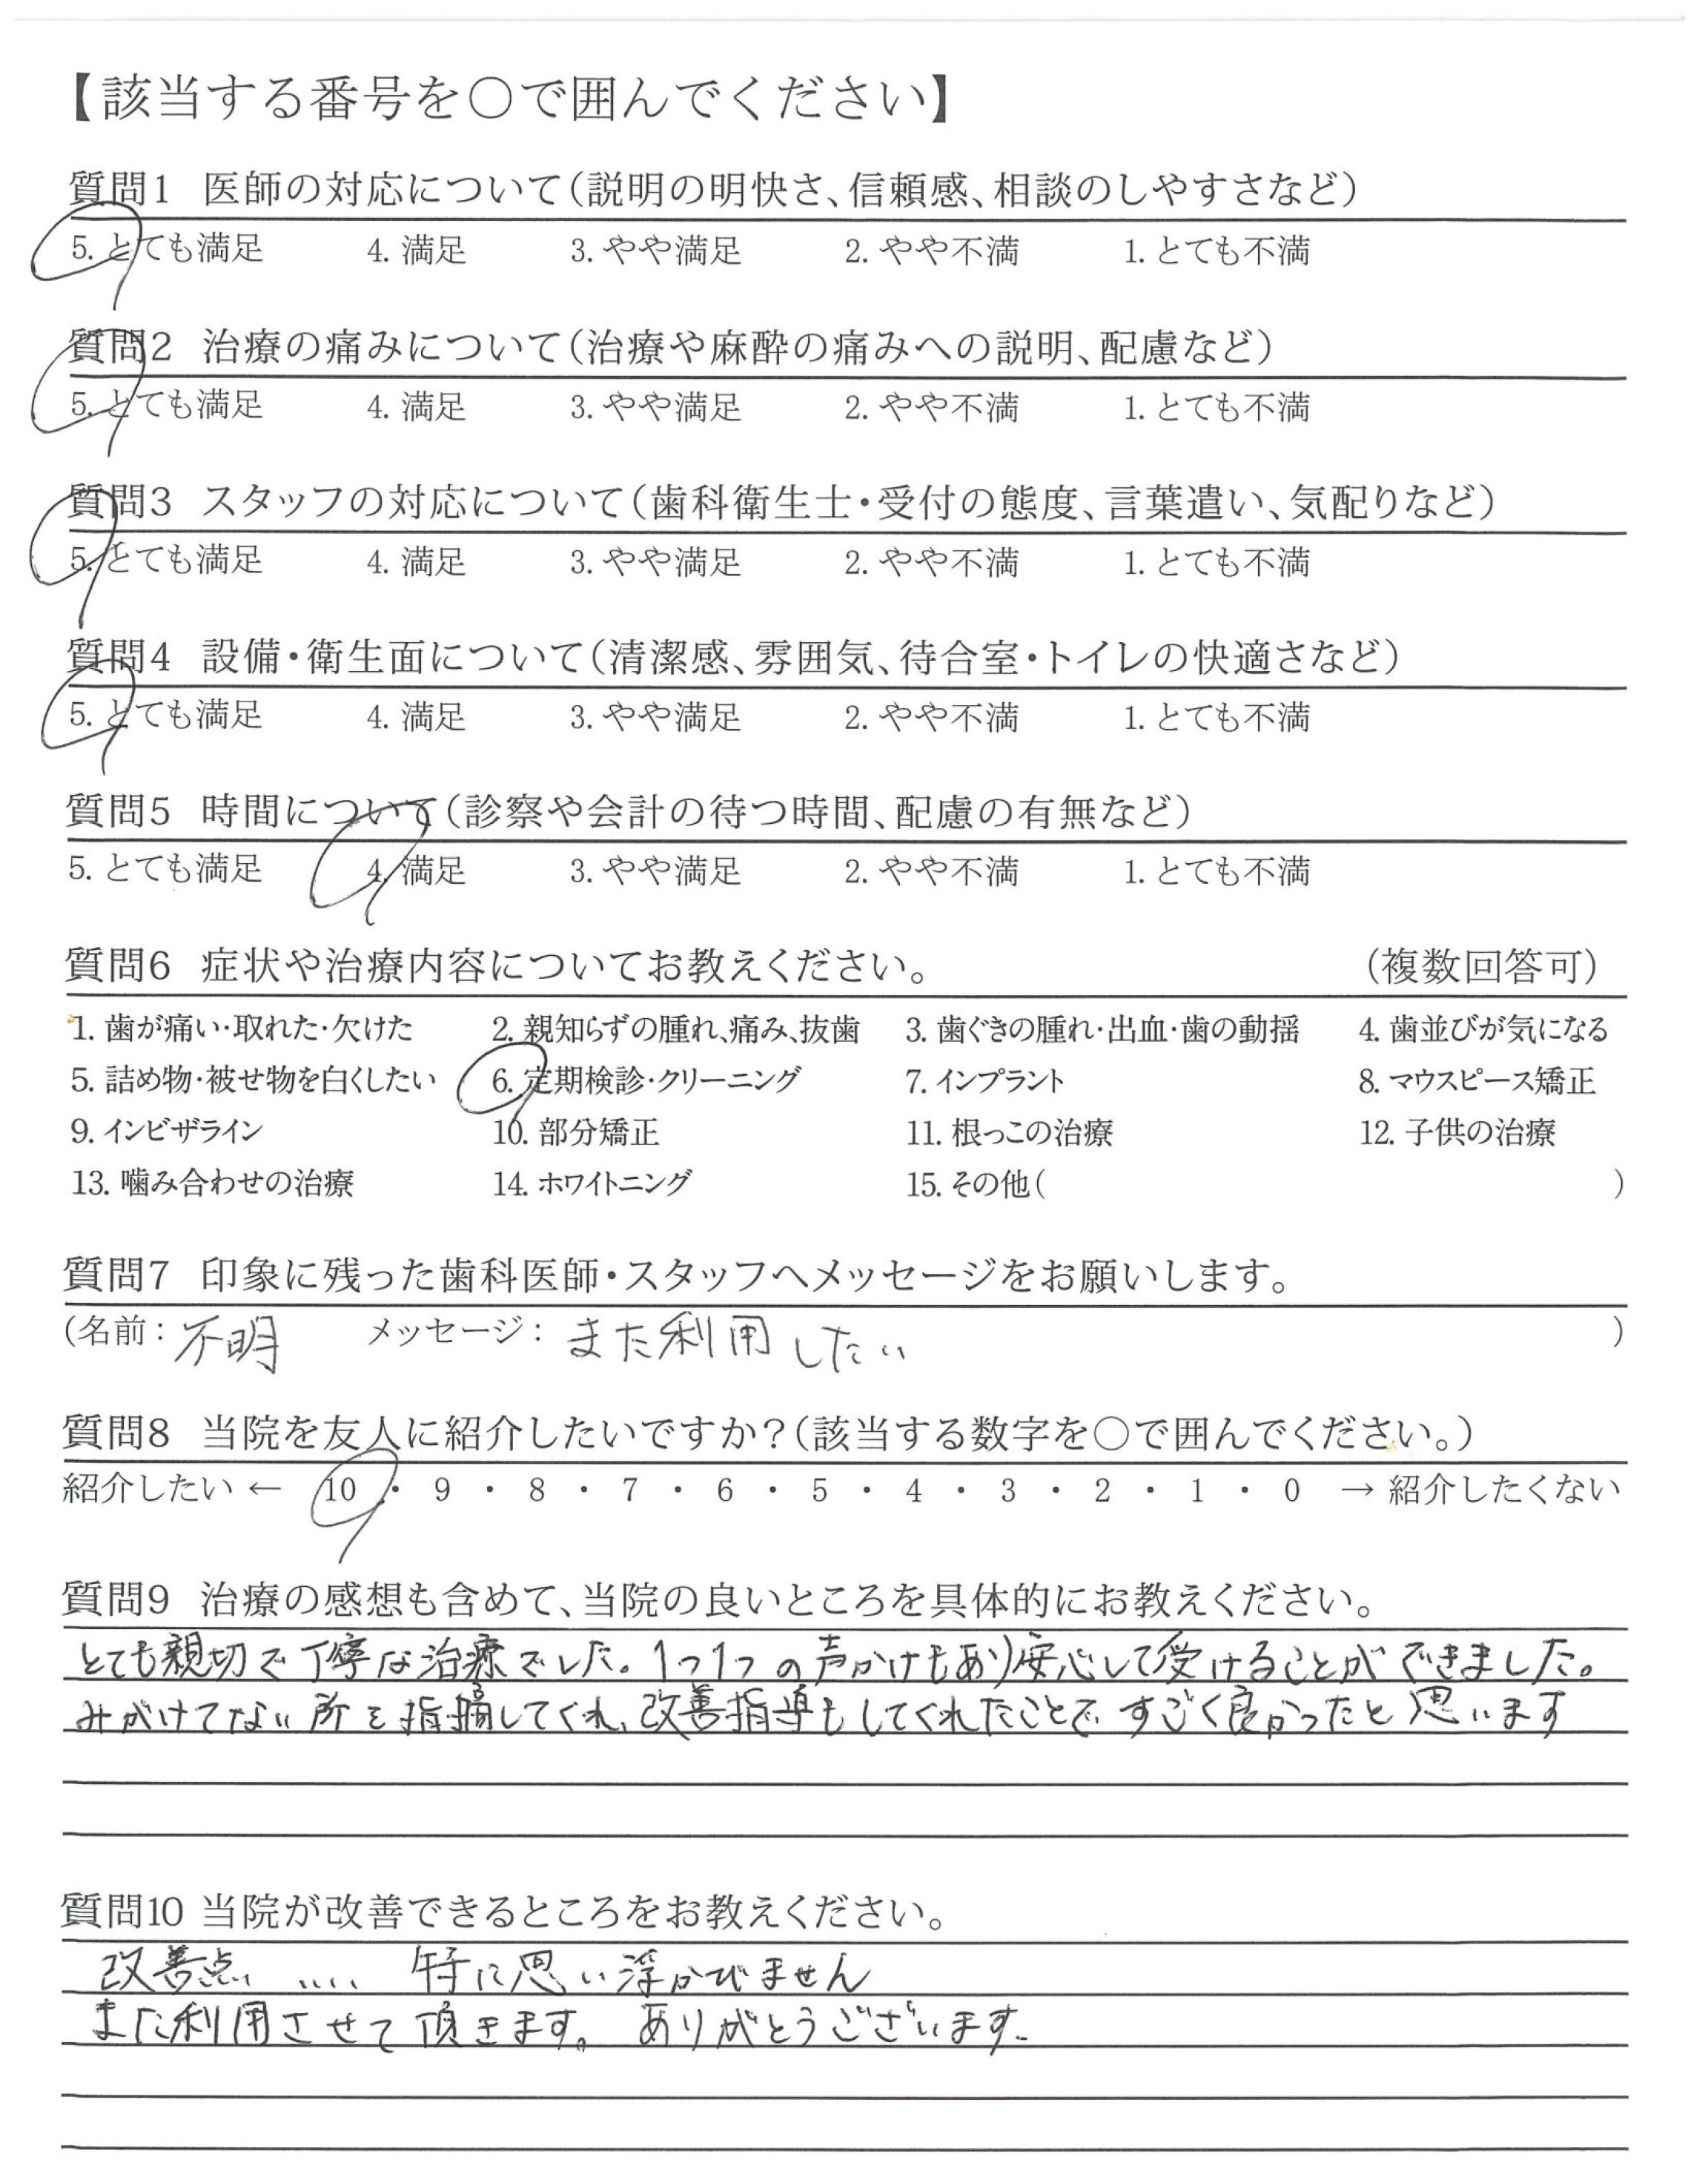 【該当する番号を〇で囲んでください】
質問1 医師の対応について(説明の明快さ、信頼感、相談のしやすさなど)
5. とても満足 4. 満足 3. やや満足 2. やや不満 1. とても不満
質問2 治療の痛みについて(治療や麻酔の痛みへの説明、配慮など)
5. とても満足 4. 満足 3. やや満足 2. やや不満 1. とても不満
質問3 スタッフの対応について(歯科衛生士・受付の態度、言葉遣い、気配りなど)
5. とても満足 4. 満足 3. やや満足 2. やや不満 1. とても不満
質問4 設備・衛生面について(清潔感、雰囲気、待合室・トイレの快適さなど)
5. とても満足 4. 満足 3. やや満足 2. やや不満 1. とても不満
質問5 時間について(診察や会計の待つ時間、配慮の有無など)
5. とても満足 4. 満足 3. やや満足 2. やや不満 1. とても不満
質問6 症状や治療内容についてお教えください。 (複数回答可)
1. 歯が痛い・取れた・欠けた 2. 親知らずの腫れ、痛み、抜歯 3. 歯ぐきの腫れ・出血・歯の動揺 4. 歯並びが気になる
5. 詰め物・被せ物を白くしたい 6. 定期検診・クリーニング 7. インプラント 8. マウスピース矯正
9. インビザライン 10. 部分矯正 11. 根っこの治療 12. 子供の治療
13. 噛み合わせの治療 14. ホワイトニング 15. その他( )
質問7 印象に残った歯科医師・スタッフへメッセージをお願いします。
(名前: 不明 メッセージ: また利用したい )
質問8 当院を友人に紹介したいですか?(該当する数字を〇で囲んでください。)
紹介したい ← 10 ・ 9 ・ 8 ・ 7 ・ 6 ・ 5 ・ 4 ・ 3 ・ 2 ・ 1 ・ 0 → 紹介したくない
質問9 治療の感想も含めて、当院の良いところを具体的にお教えください。
とても親切で丁寧な治療でした。1つ1つの声かけもあり安心して受けることができました。
みがけてない所を指摘してくれ、改善指導もしてくれたことで すごく良かったと思います
質問10 当院が改善できるところをお教えください。
改善点 .... 特に思い浮かびません
また利用させて頂きます。 ありがとうございます。